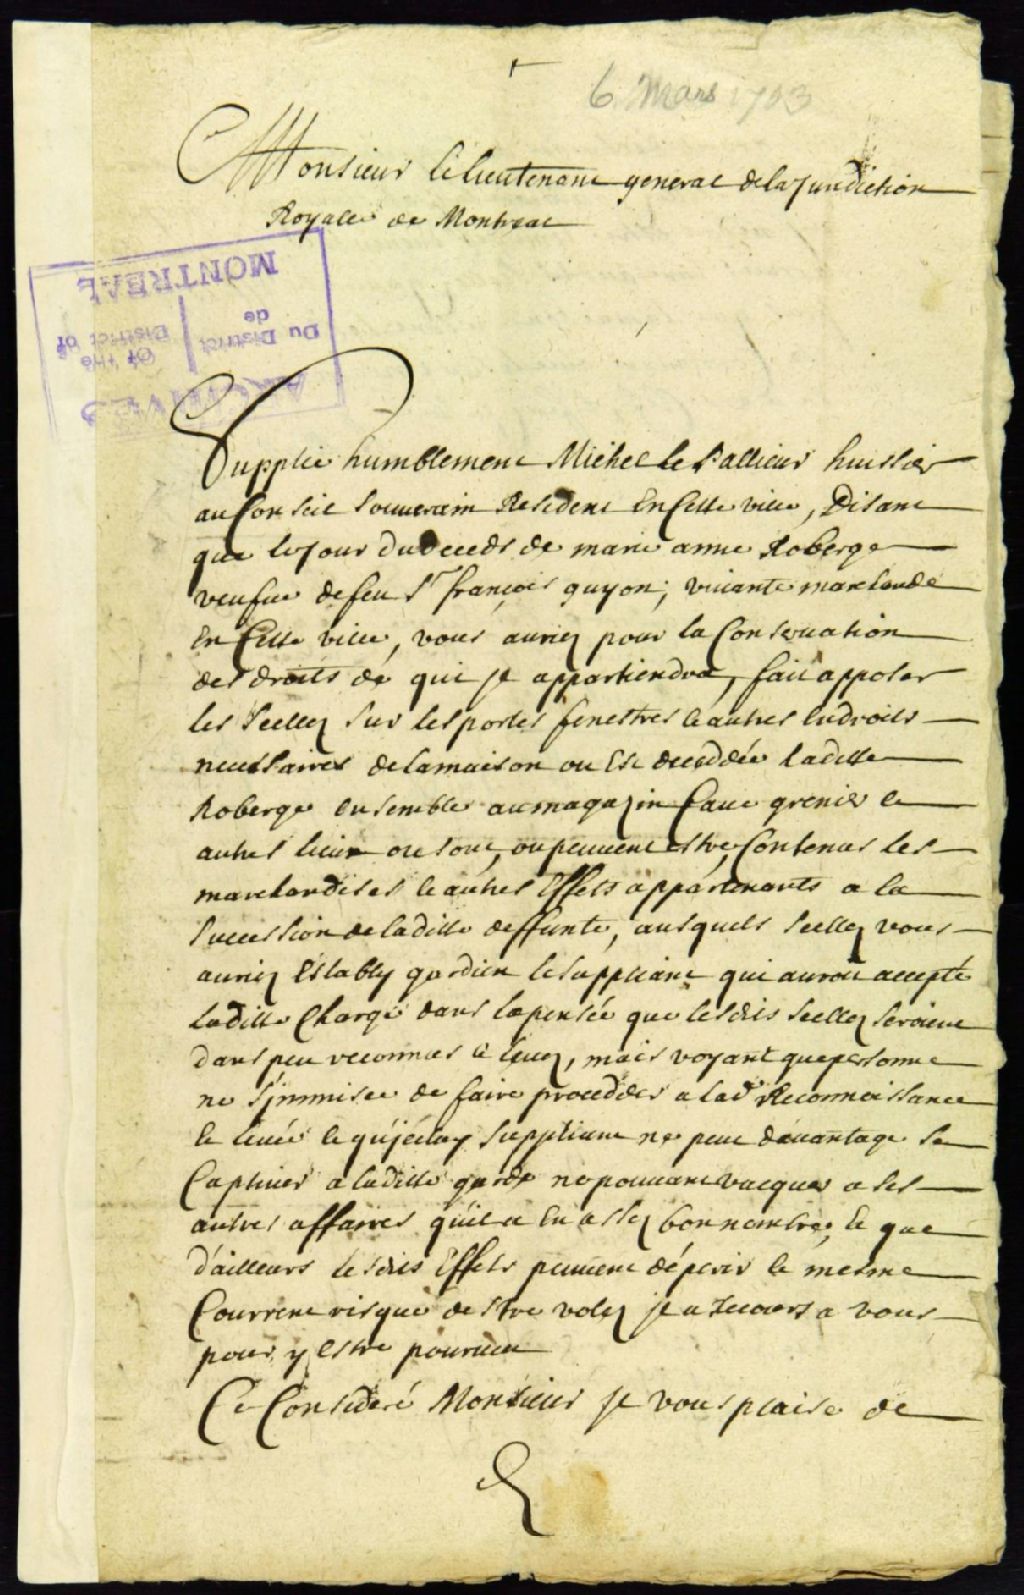 6 Mars 1703
Monsieur le lieutenant general de la Jurisdiction
Royalle de Montreal
MONTREAL
Du District | Of the
de | District of
ARCHIVES
Supplie humblement Michel le Pallieur huissier
au Conseil Souverain Resident En Cette ville, Disant
que le Jour du deceds de marie anne Roberge
veufue de feu Sr françois guyon, vivante marchande
En Cette ville, vous auriez pour la Conservation
des droits de qui Il appartiendra, fait apposer
les Scellez sur les portes fenestres & autres Endroits
necessaires de la maison ou Est deceddée laditte
Roberge Ensemble au magazin Cave grenier &
autres lieux ou sont, ou peuvent estre Contenus les
marchandises & autres Effets appartenants a la
succession de laditte deffunte, ausquels scellez vous
auriez Estably gardien le suppliant qui auroit accepté
laditte Charge dans la pensée que lesdits scellez seroient
dans peu reconnus & levez, mais voyant que personne
ne s'jmmisce de faire procedder a lad. Reconnoissance
& levée & qu'jceluy suppliant ne peut davantage se
Captiver a laditte garde ne pouvant vacquer a ses
autres affaires qu'il a En assez bon nombre, & que
d'ailleurs lesdits Effets peuvent déperir & mesme
Courrent risque destre volez Il a recours a vous
pour y Estre pourveu
Ce Consideré Monsieur Il vous plaise de